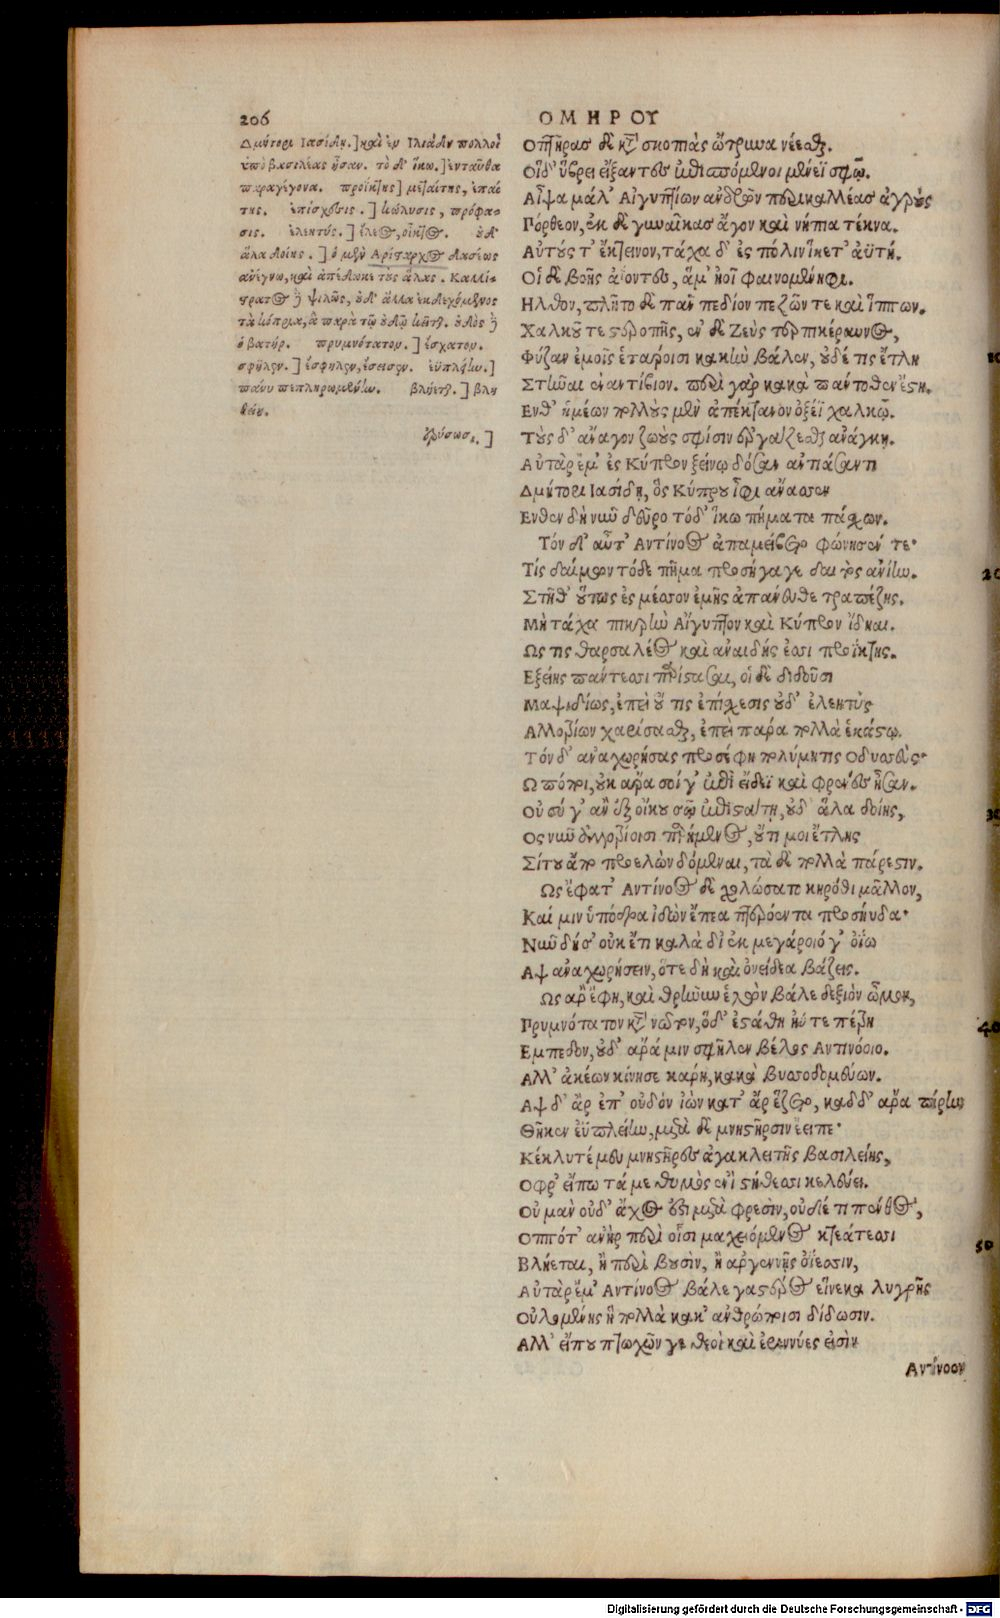 206
ΟΜΗΡΟΥ
Δμήτορι Ιασίδῃ.] καὶ ἐν Ιλιάδιν πολλοὶ
ὑπὸ βασιλέας ἦσαν. τὸ δ' ἵκω.] ἐνταῦθα
παραγέγονα. προίκτης] μεταίτης, ἐπαί
της. ἐπίσχεσις.] κώλυσις, πρόφα-
σις. ἐλεητύς.] ἔλεος, οἶκτος. οὐδ'
ἅλα δοίης.] ὁ μὲν Αρίσταρχος δασέως
ἀνέγνω, καὶ ἀπέδωκε τοὺς ἅλας. Καλλί-
στρατος ἢ ψιλῶς, οὐδ' ἄλλα ἐκδεχόμενος
τὰ κόπρια, ἃ παρὰ τῷ οὐδῷ κεῖται. οὐδὸς ἢ
ὁ βατήρ. πρυμνότατον.] ἔσχατον.
σφῆλεν.] ἔσφηλεν, ἔσεισεν. ἐϋπλείην.]
πάνυ πεπληρωμένην. βλήεται.] βλη
θείη.
Οπτῆρας δὲ κατὰ σκοπιὰς ὤτρυνα νέεσθαι.
Οἱ δ' ὕβρει εἴξαντες ἐπισπόμενοι μένεϊ σφῷ.
Αἶψα μάλ' Αἰγυπτίων ἀνδρῶν περικαλλέας ἀγροὺς
Πόρθεον, ἐκ δὲ γυναῖκας ἄγον καὶ νήπια τέκνα.
Αὐτούς τ' ἔκτεινον, τάχα δ' ἐς πόλιν ἵκετ' ἀϋτή.
Οἱ δὲ βοῆς ἀίοντες, ἅμ' ἠοῖ φαινομένηφι.
Ηλθον, πλῆτο δὲ πᾶν πεδίον πεζῶν τε καὶ ἵππων.
Χαλκοῦ τε στεροπῆς, ἐν δὲ Ζεὺς τερπικέραυνος,
Φύζαν ἐμοῖς ἑτάροισι κακὴν βάλεν, οὐδέ τις ἔτλη
Στῆναι ἐναντίβιον. περὶ γὰρ κακὰ πάντοθεν ἔστη.
Ενθ' ἡμέων πολλοὺς μὲν ἀπέκτανον ὀξέϊ χαλκῷ.
Τοὺς δ' ἄναγον ζωοὺς σφίσιν ἐργάζεσθαι ἀνάγκῃ.
Αὐτὰρ ἔμ' ἐς Κύπρον ξείνῳ δόσαν ἀντιάσαντι
Δμήτορι Ιασίδῃ, ὃς Κύπρου ἶφι ἄνασσεν
Ενθεν δὴ νῦν δεῦρο τόδ' ἵκω πήματα πάσχων.
Τόν δ' αὖτ' Αντίνοος ἀπαμείβετο φώνησέν τε·
Τίς δαίμων τόδε πῆμα προσήγαγε δαιτὸς ἀνίην.
Στῆθ' οὕτως ἐς μέσσον ἐμῆς ἀπάνευθε τραπέζης.
Μὴ τάχα πικρὴν Αἴγυπτον καὶ Κύπρον ἴδηαι.
Ως τις θαρσαλέος καὶ ἀναιδής ἐσσι προΐκτης.
Εξείης πάντεσσι παρίστασαι, οἱ δὲ διδοῦσι
Μαψιδίως, ἐπεὶ οὔ τις ἐπίσχεσις οὐδ' ἐλεητὺς
Αλλοτρίων χαρίσασθαι, ἐπεὶ πάρα πολλὰ ἑκάστῳ.
Τόν δ' ἀναχωρήσας προσέφη πολύμητις Οδυσσεύς·
Ω πόποι, οὐκ ἄρα σοί γ' ἐπὶ εἴδεϊ καὶ φρένες ἦσαν.
Οὐ σύ γ' ἂν ἐξ οἴκου σῷ ἐπιστάτῃ, οὐδ' ἅλα δοίης,
Ος νῦν ἀλλοτρίοισι παρήμενος, οὔτι μοι ἔτλης
Σίτου ἄπο προελὼν δόμεναι, τὰ δὲ πολλὰ πάρεστιν.
Ως ἔφατ' Αντίνοος δὲ χολώσατο κηρόθι μᾶλλον,
Καί μιν ὑπόδρα ἰδὼν ἔπεα πτερόεντα προσηύδα·
Νῦν δή σ' οὐκ ἔτι καλὰ δὶ ἐκ μεγάροιό γ' ὀίω
Αψ ἀναχωρήσειν, ὅτε δὴ καὶ ὀνείδεα βάζεις.
Ως ἄρ' ἔφη, καὶ θρῆνυν ἑλὼν βάλε δεξιὸν ὦμον,
Πρυμνότατον κατὰ νῶτον, ὁ δ' ἐστάθη ἠύτε πέτρη
Εμπεδον, οὐδ' ἄρά μιν σφῆλεν βέλος Αντινόοιο.
Αλλ' ἀκέων κίνησε κάρη, κακὰ βυσσοδομεύων.
Αψ δ' ἂρ ἐπ' οὐδόν ἰὼν κατ' ἂρ ἕζετο, καδδ' ἄρα πήρην
Θῆκεν ἐϋπλείην, μετὰ δὲ μνηστῆρσιν ἔειπε·
Κέκλυτέ μευ μνηστῆρες ἀγακλειτῆς βασιλείης,
Οφρ' εἴπω τά με θυμὸς ἐνὶ στήθεσσι κελεύει.
Οὐ μὰν οὐδ' ἄχος ἐστὶ μετὰ φρεσὶν, οὐδέ τι πένθος,
Οππότ' ἀνὴρ περὶ οἷσι μαχειόμενος κτεάτεσσι
Βλήεται, ἢ περὶ βουσὶν, ἢ ἀργεννῆς ὀΐεσσιν,
Αὐτὰρ ἔμ' Αντίνοος βάλε γαστέρος εἵνεκα λυγρῆς
Οὐλομένης ἣ πολλὰ κάκ' ἀνθρώποισι δίδωσιν.
Αλλ' εἴπου πτωχῶν γε θεοὶ καὶ ἐριννύες εἰσὶν
Αντίνοον
Digitalisierung gefördert durch die Deutsche Forschungsgemeinschaft - DFG